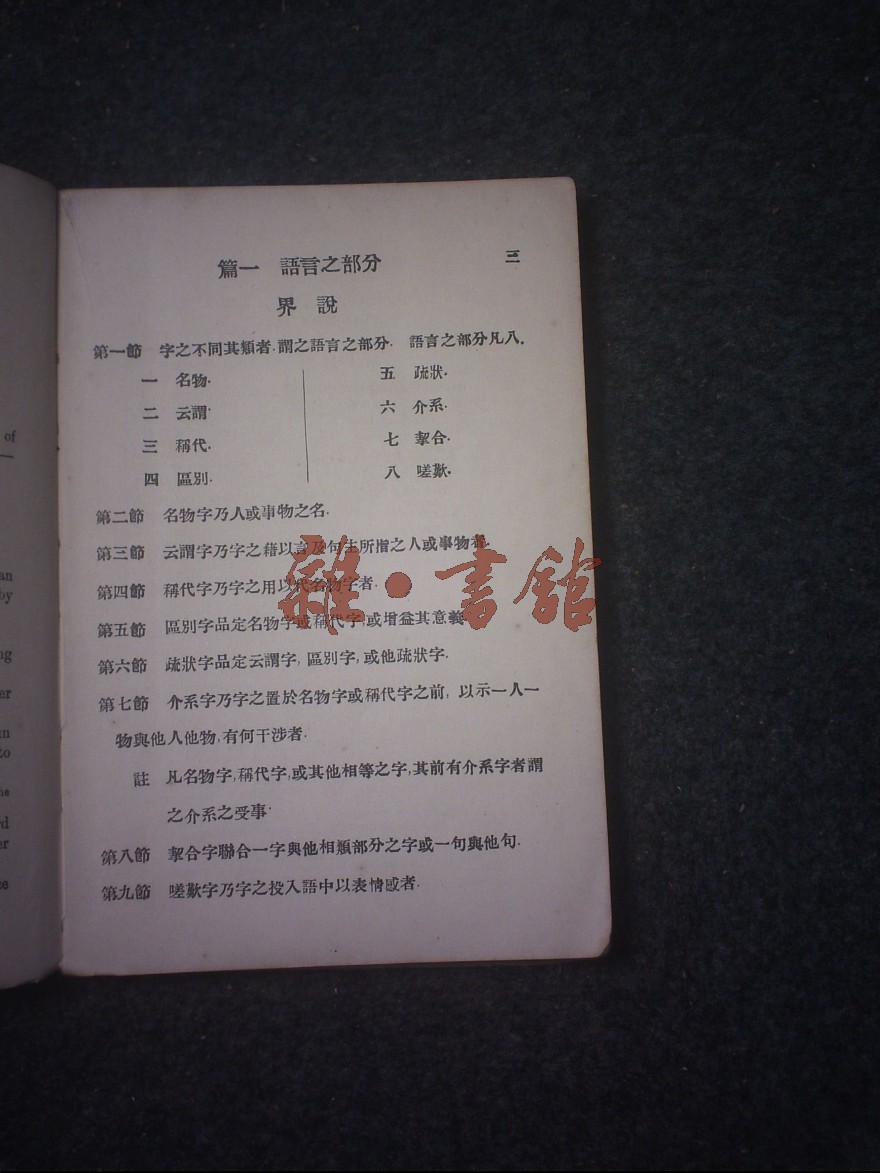 篇一 語言之部分
三
界說
第一節 字之不同其類者.謂之語言之部分. 語言之部分凡八.
一 名物.
五 疏狀.
二 云謂.
六 介系.
三 稱代.
七 挈合.
四 區別.
八 嗟歎.
第二節 名物字乃人或事物之名.
第三節 云謂字乃字之藉以言及句主所指之人或事物者.
第四節 稱代字乃字之用以代名物字者.
第五節 區別字品定名物字或稱代字,或增益其意義.
第六節 疏狀字品定云謂字, 區別字, 或他疏狀字.
第七節 介系字乃字之置於名物字或稱代字之前, 以示一人一
物與他人他物,有何干涉者.
註 凡名物字,稱代字,或其他相等之字,其前有介系字者謂
之介系之受事.
第八節 挈合字聯合一字與他相類部分之字或一句與他句.
第九節 嗟歎字乃字之投入語中以表情感者.
雜·書館
of
an
by
ng
er
in
to
he
rd
er
ce